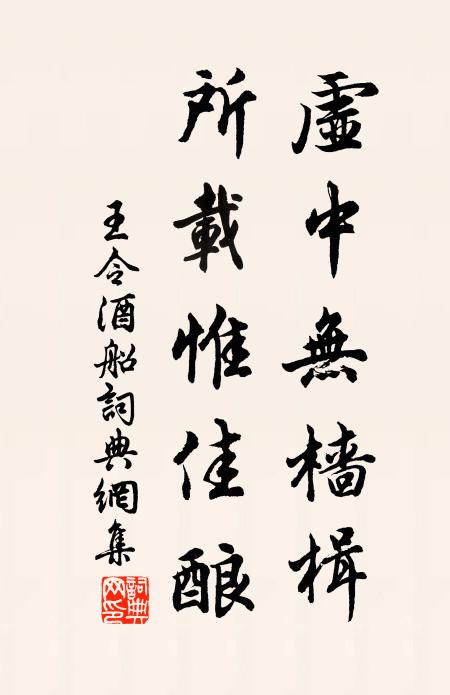 虛中無檣楫
所載惟佳酿
王令酒船詞典網集
詞典网印